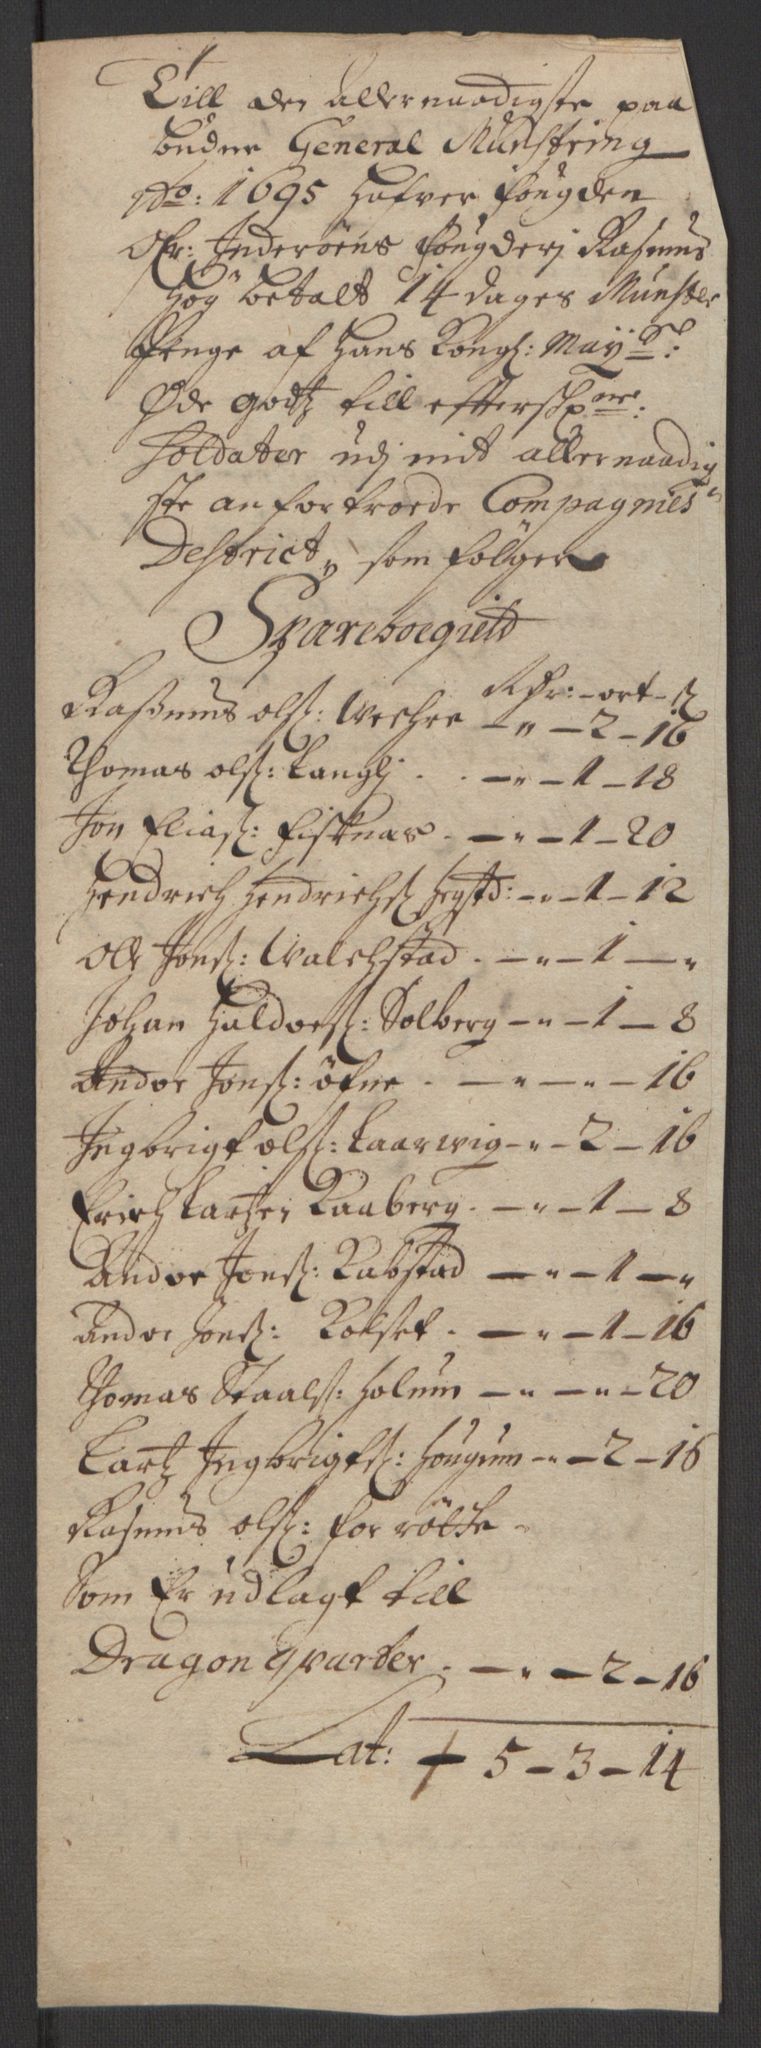 Till den allernaadigste paa
budne General Munstring
Ao: 1695 hafver fougden
ofr: Inderöens fougderj Rasmus
Hög betalt 14 dages Munster
Penge af Hans Kongl: May
Øde godtz till effterschr:
Soldater udj mit allernaadig
ste anfortroede Compagnies
District, som fölger
Spareboegield
Rdr: - ort - s
Rasmus ols: Wechre - " - 2 - 16
Thomas ols: Langlj - " - 1 - 18
Jon Elias: Fisknas - " - 1 - 20
Hendrich Hendrichs Hegstd: - " - 1 - 12
Ole Jons: Walchstad - " - 1 - "
Johan Haldoes: Solberg - " - 1 - 8
Andor Jons: öfne - " - " - 16
Ingbrigt ols: Laarwig - " - 2 - 16
Erich Lartzen Raaberg - " - 1 - 8
Andor Jons: Rabstad - " - 1 - "
Andor Jons: Kolset - " - 1 - 16
Thomas Staals: Holum - " - " - 20
Lartz Ingbrigts: Hougum - " - 2 - 16
Rasmus ols: for röttte
Som Er udlagt till
Dragon qvarter - " - 2 - 16
Lat: 5 - 3 - 14